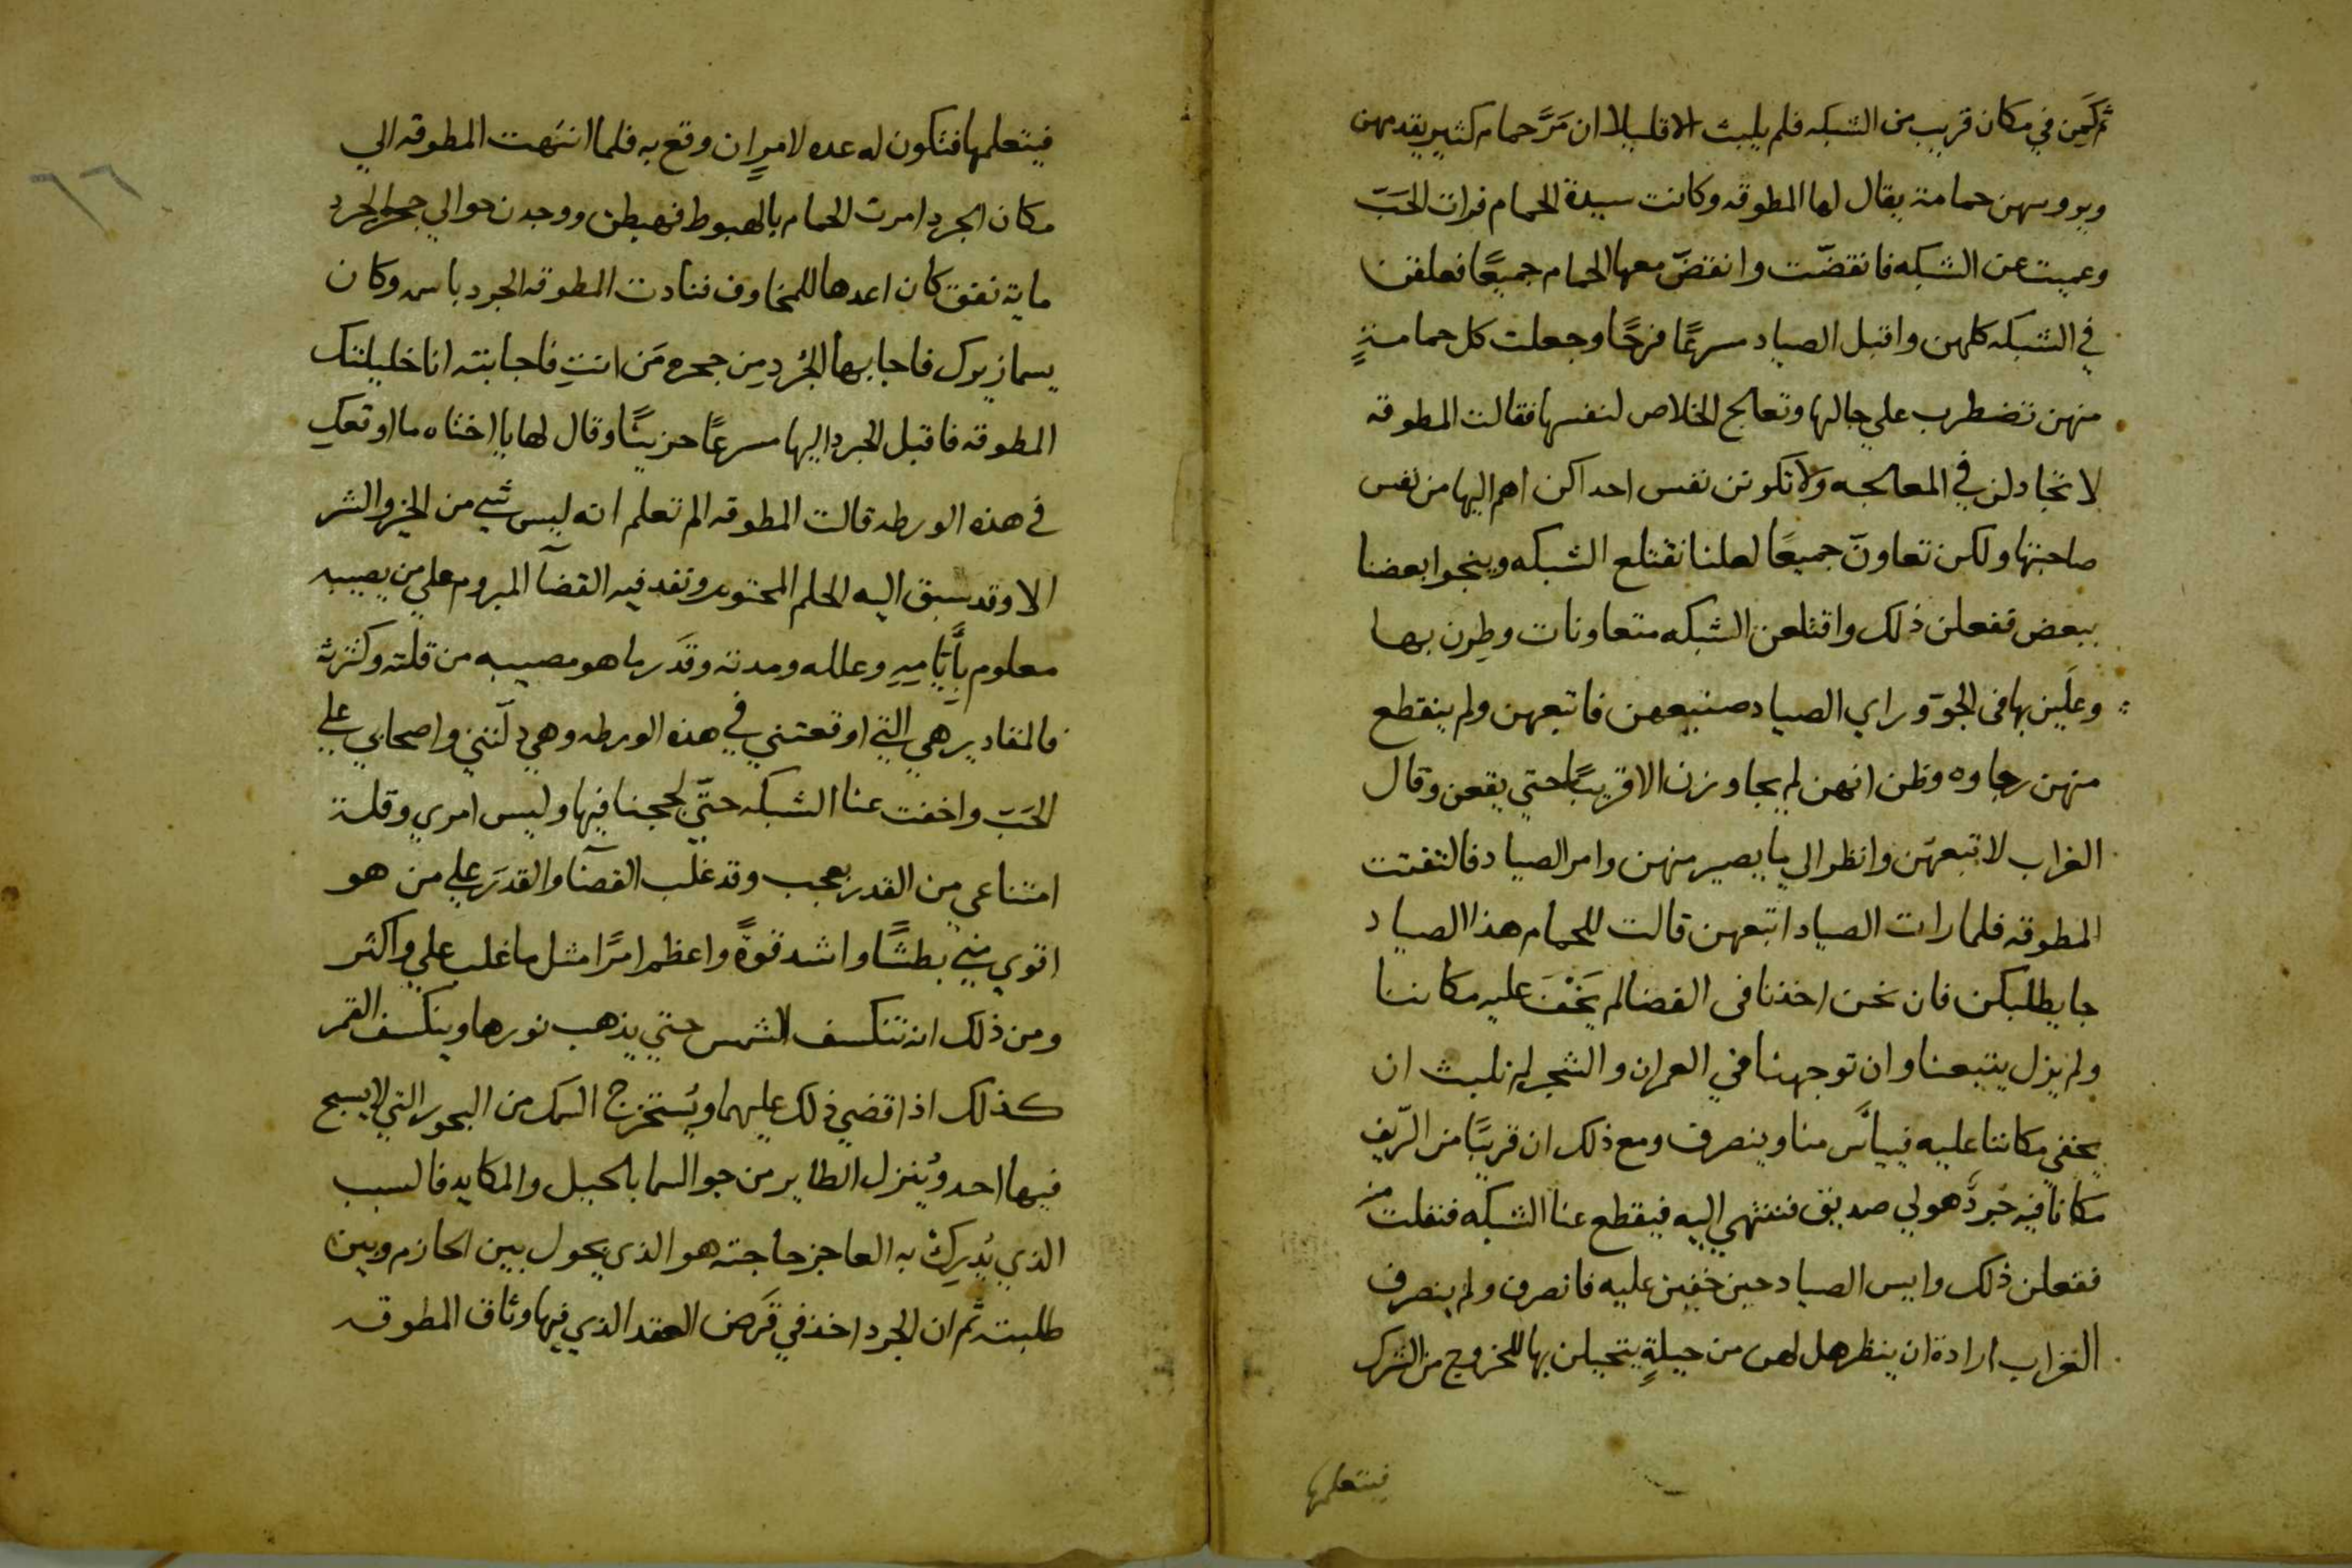 ثم كَمِن في مكان قريب من الشبكه فلم يلبث الا قليلا ان مَرَّ حمام كثير يقدمهن
ويروسهن حمامة يقال لها المطوقه وكانت سيدة الحمام فرات الحَبّ
وعميت عن الشبكه فانقضّت وانقضّ معها الحمام جميعًا فعلقن
في الشبكه كلهن واقبل الصياد مسرعًا فرحًا وجعلت كل حمامةٍ
منهن تضطرب علي حالها وتعالج الخلاص لنفسها فقالت المطوقه
لا تخادلن في المعالجه ولا تكونن نفس احداكن اهم اليها من نفس
صاحبتها ولكن تعاونّ جميعًا لعلنا نقتلع الشبكه وينجوا بعضنا
ببعض ففعلن ذلك واقتلعن الشبكه متعاونات وطرن بها
وعلَين بها فى الجوّ وراي الصياد صنيعهن فاتبعهن ولم ينقطع
منهن رجاوه وظن انهن لم يجاوزن الا قريبًا حتي يقعن وقال
الغراب لاتبعهّن وانظر الي ما يصير منهن وامر الصياد فالتفتت
المطوقه فلما رات الصياد اتبعهن قالت للحمام هذا الصياد
جا يطلبكن فان نحن اخذنا فى الفضا لم يَخْفَ عليه مكاننا
ولم يزل يتبعنا وان توجهنا في العمران والشجر لم نلبث ان
يخفي مكاننا عليه فييأس منا وينصرف ومع ذلك ان قريبًا من الرّيف
مكانا فيه جُردٌ هو لي صديق فننتهي اليه فيقطع عنا الشبكه فنفلت منه
ففعلن ذلك وايس الصياد حين خفين عليه فانصرف ولم ينصرف
الغراب ارادة ان ينظر هل لهن من حيلةٍ يتحيلن بها للخروج من الشرك
فيتعلمها
٦٦
فيتعلمها فتكون له عده لامرٍ ان وقع به فلما انتهت المطوقه الي
مكان الجرد امرت الحمام بالهبوط فهبطن ووجدن حوالي جحر الجرد
ماية نفق كان اعدها للمخاوف فنادت المطوقه الجرد باسمه وكان
يسما زيرك فاجابها الجُرد مِن جحره مَن انتِ فاجابته انا خليلتك
المطوقه فاقبل الجرد اليها مسرعًا حزينًا وقال لها يا اختاه ما اوقعكِ
في هذه الورطه قالت المطوقه الم تعلم انه ليس شي من الخير والشر
الا وقد سبق اليه الحلم المحتوم ونفد فيه القضآ المبروم علي من يصيبه
معلوم بأَيَّامِهِ وعلله ومدته وقَدَر ما هو مصيبه من قلته وكثرته
فالمقادير هي التي اوقعتني في هذه الورطه وهي دلّتني واصحابي علي
الحَبّ واخفت عنا الشبكه حتّي لججنا فيها وليس امري وقلة
امتناعي من القدر بعجب وقد غلب القضآ والقدَر علي من هو
اقوي مني بطشًا واشد قوةً واعظم امرًا مثل ما غلب علي واكثر
ومن ذلك انه تنكسف الشمس حتي يذهب نورها وينكسف القمر
كذلك اذا قضي ذلك عليهما ويُستخرج السمك من البحور التي لا يسبح
فيها احد ويُنزل الطاير من جو السما بالحيل والمكايد فالسبب
الذي يُدرِكُ به العاجز حاجته هو الذي يحول بين الحازم وبين
طلبته ثم ان الجرد اخذ في قَرض العقد الذي فيها وثاق المطوقه